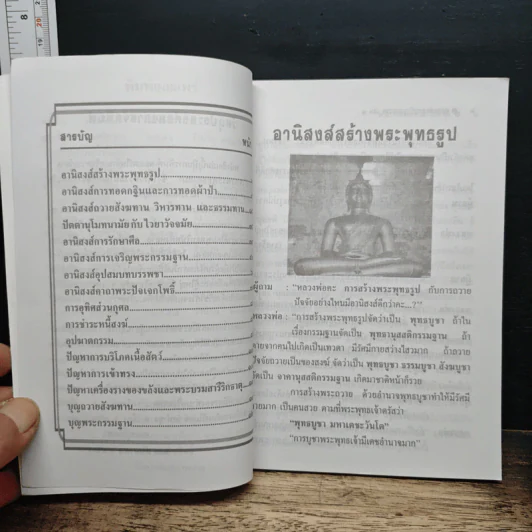 สารบัญ
หน้า
อานิสงส์สร้างพระพุทธรูป
อานิสงส์การทอดกฐินและการทอดผ้าป่า
อานิสงส์ถวายสังฆทาน วิหารทาน และธรรมทาน
ปัตตานุโมทนามัย กับ ไวยาวัจจมัย
อานิสงส์การรักษาศีล
อานิสงส์การเจริญพระกรรมฐาน
อานิสงส์อุปสมบทบรรพชา
อานิสงส์คาถาพระปัจเจกโพธิ์
การอุทิศส่วนกุศล
การชำระหนี้สงฆ์
อุปฆาตกรรม
ปัญหาการบริโภคเนื้อสัตว์
ปัญหาการเข้าทรง
ปัญหาเครื่องรางของขลังและพระบรมสารีริกธาตุ
บุญถวายสังฆทาน
บุญพระกรรมฐาน
อานิสงส์สร้างพระพุทธรูป
ผู้ถาม : "หลวงพ่อคะ การสร้างพระพุทธรูป กับการถวาย
ปัจจัยอย่างไหนมีอานิสงส์ดีกว่าคะ...?"
หลวงพ่อ : "การสร้างพระพุทธรูปจัดว่าเป็น พุทธบูชา ถ้าใน
เรื่องกรรมฐานจัดเป็น พุทธานุสสติกรรมฐาน ถ้า
ตายจากคนไปเกิดเป็นเทวดา มีรัศมีกายสว่างไสวมาก ถ้าถวาย
ปัจจัยถวายเป็นของสงฆ์ จัดว่าเป็น พุทธบูชา ธรรมบูชา สังฆบูชา
จัดเป็น จาคานุสสติกรรมฐาน เกิดมาชาติหน้าก็รวย
การสร้างพระถวาย ด้วยอำนาจพุทธบูชาทำให้มีรัศมี
กายมาก เป็นคนสวย ตามที่พระพุทธเจ้าตรัสว่า
"พุทธบูชา มหาเตชะวันโต"
"การบูชาพระพุทธเจ้ามีเดชอำนาจมาก"